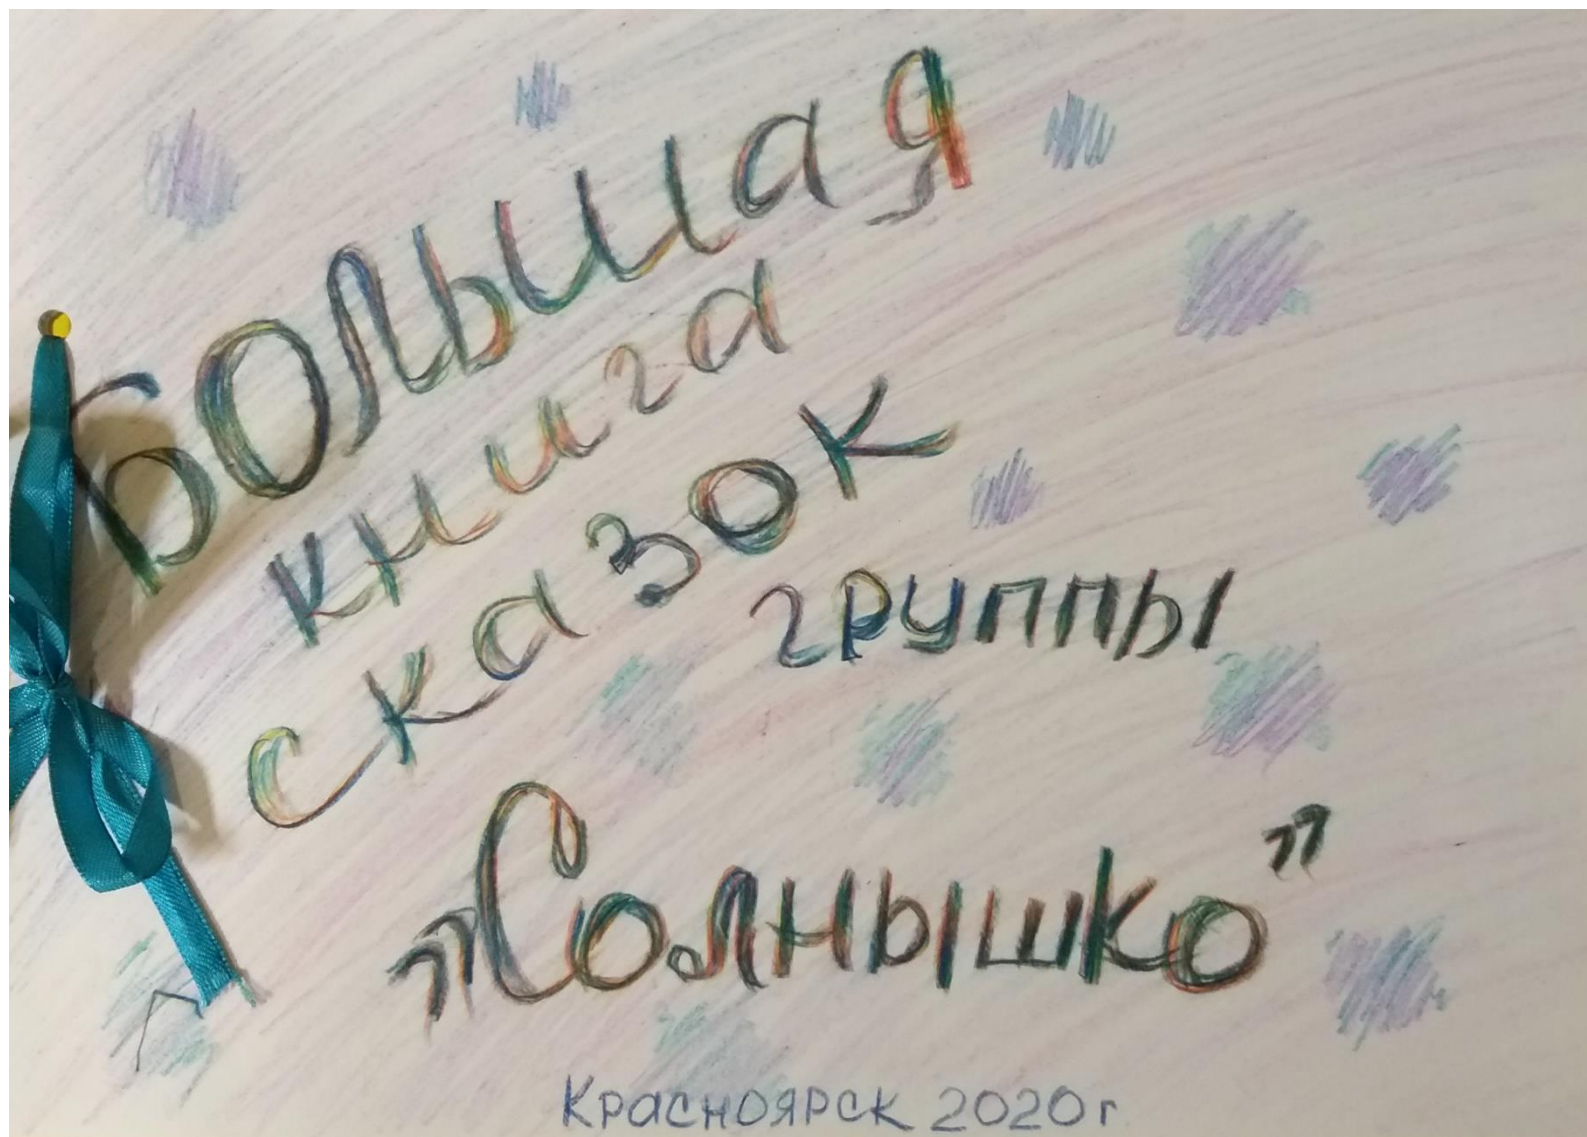 Большая
книга
сказок
группы
"Солнышко"
Красноярск 2020г